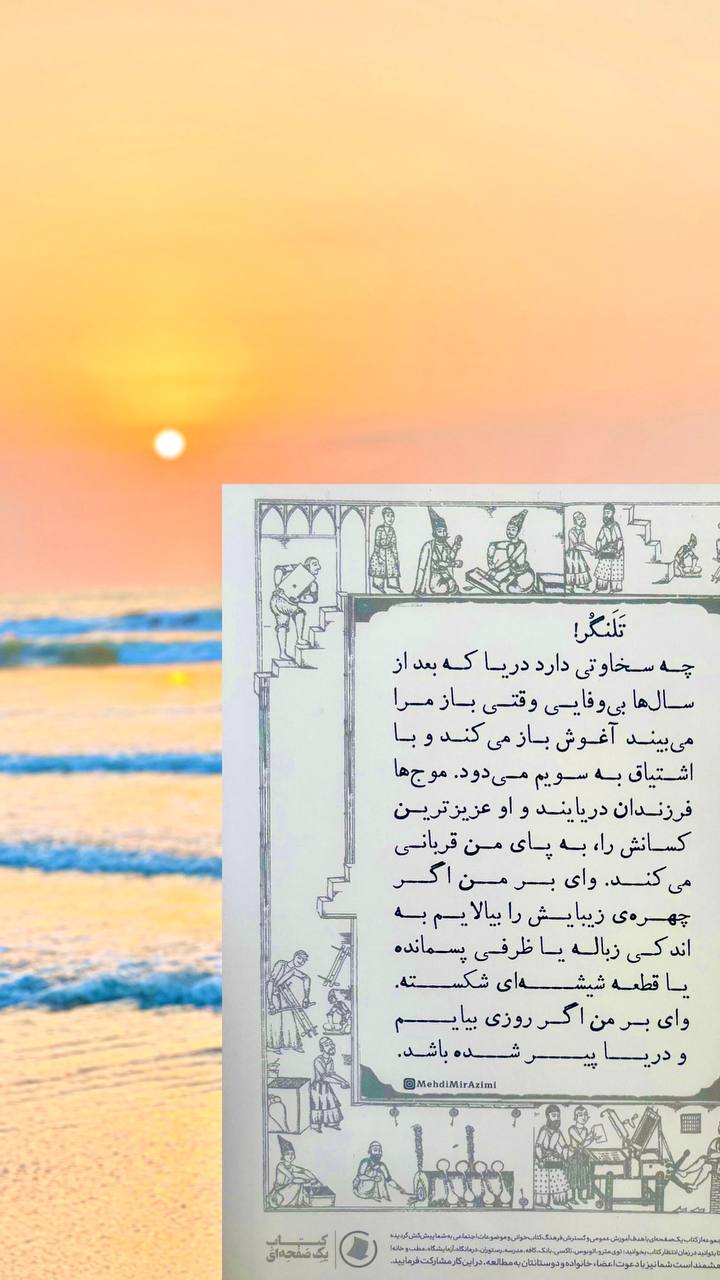 تَلَنگُر!
چه سخاوتی دارد دریا که بعد از
سال‌ها بی‌وفایی وقتی باز مرا
می‌بیند آغوش باز می‌کند و با
اشتیاق به سویم می‌دود. موج‌ها
فرزندان دریایند و او عزیزترین
کسانش را، به پای من قربانی
می‌کند. وای بر من اگر
چهره‌ی زیبایش را بیالایم به
اندکی زباله یا ظرفی پسمانده
یا قطعه شیشه‌ای شکسته.
وای بر من اگر روزی بیایم
و دریا پیر شده باشد.
MehdiMirAzimi
مجموعه از کتاب یک صفحه‌ای با هدف آموزش عمومی و گسترش فرهنگ کتاب‌خوانی و موضوعات اجتماعی به شما پیش‌کش گردیده
تا بتوانید در زمان انتظار کتاب بخوانید: توی مترو، اتوبوس، تاکسی، بانک، کافه، مدرسه، رستوران، درمانگاه، آزمایشگاه، مطب و خانه!
است شما نیز با دعوت اعضاء خانواده و دوستانتان به مطالعه، در این کار مشارکت فرمایید.
کتاب
یک صفحه‌ای